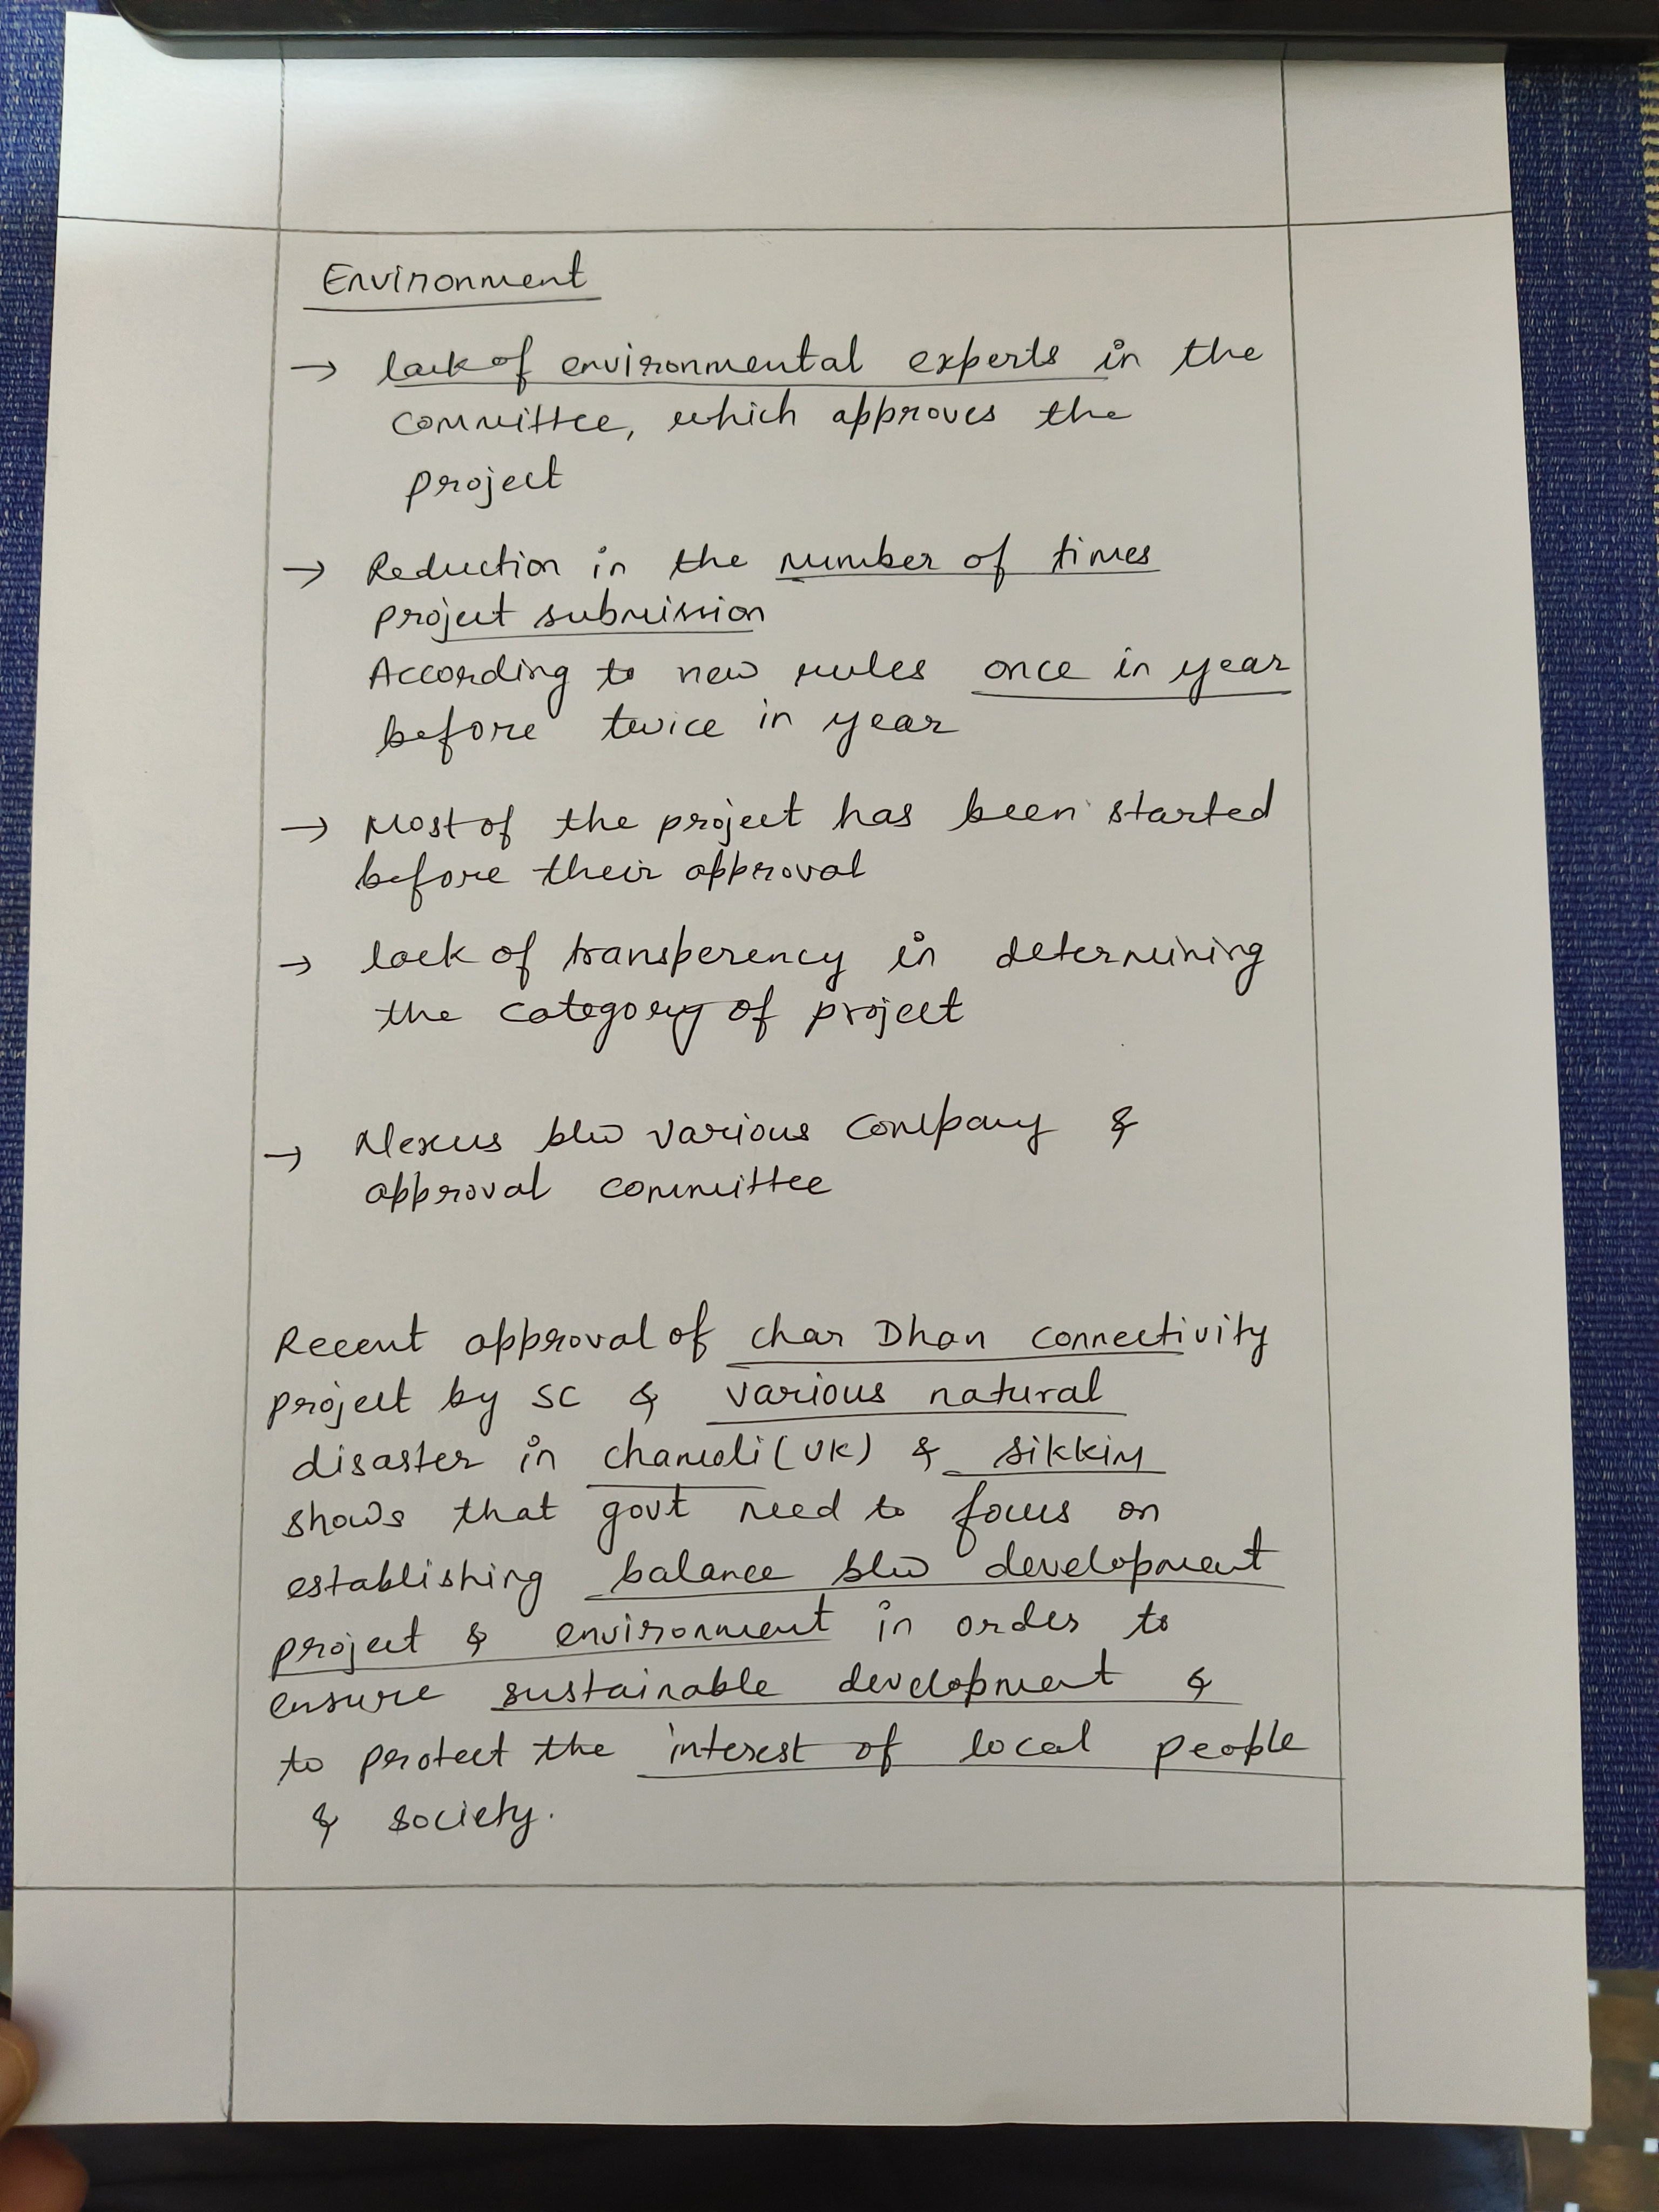 Environment
→ lack of environmental experts in the
committee, which approves the
project
→ Reduction in the number of times
project submission
According to new rules once in year
before twice in year
→ Most of the project has been started
before their approval
→ lack of transperency in determining
the category of project
→ Nexus b/w various company &
approval committee
Recent approval of char Dhan connectivity
project by SC & various natural
disaster in chamoli (UK) & sikkim
shows that govt need to focus on
establishing balance b/w development
project & environment in order to
ensure sustainable development &
to protect the interest of local people
& society.